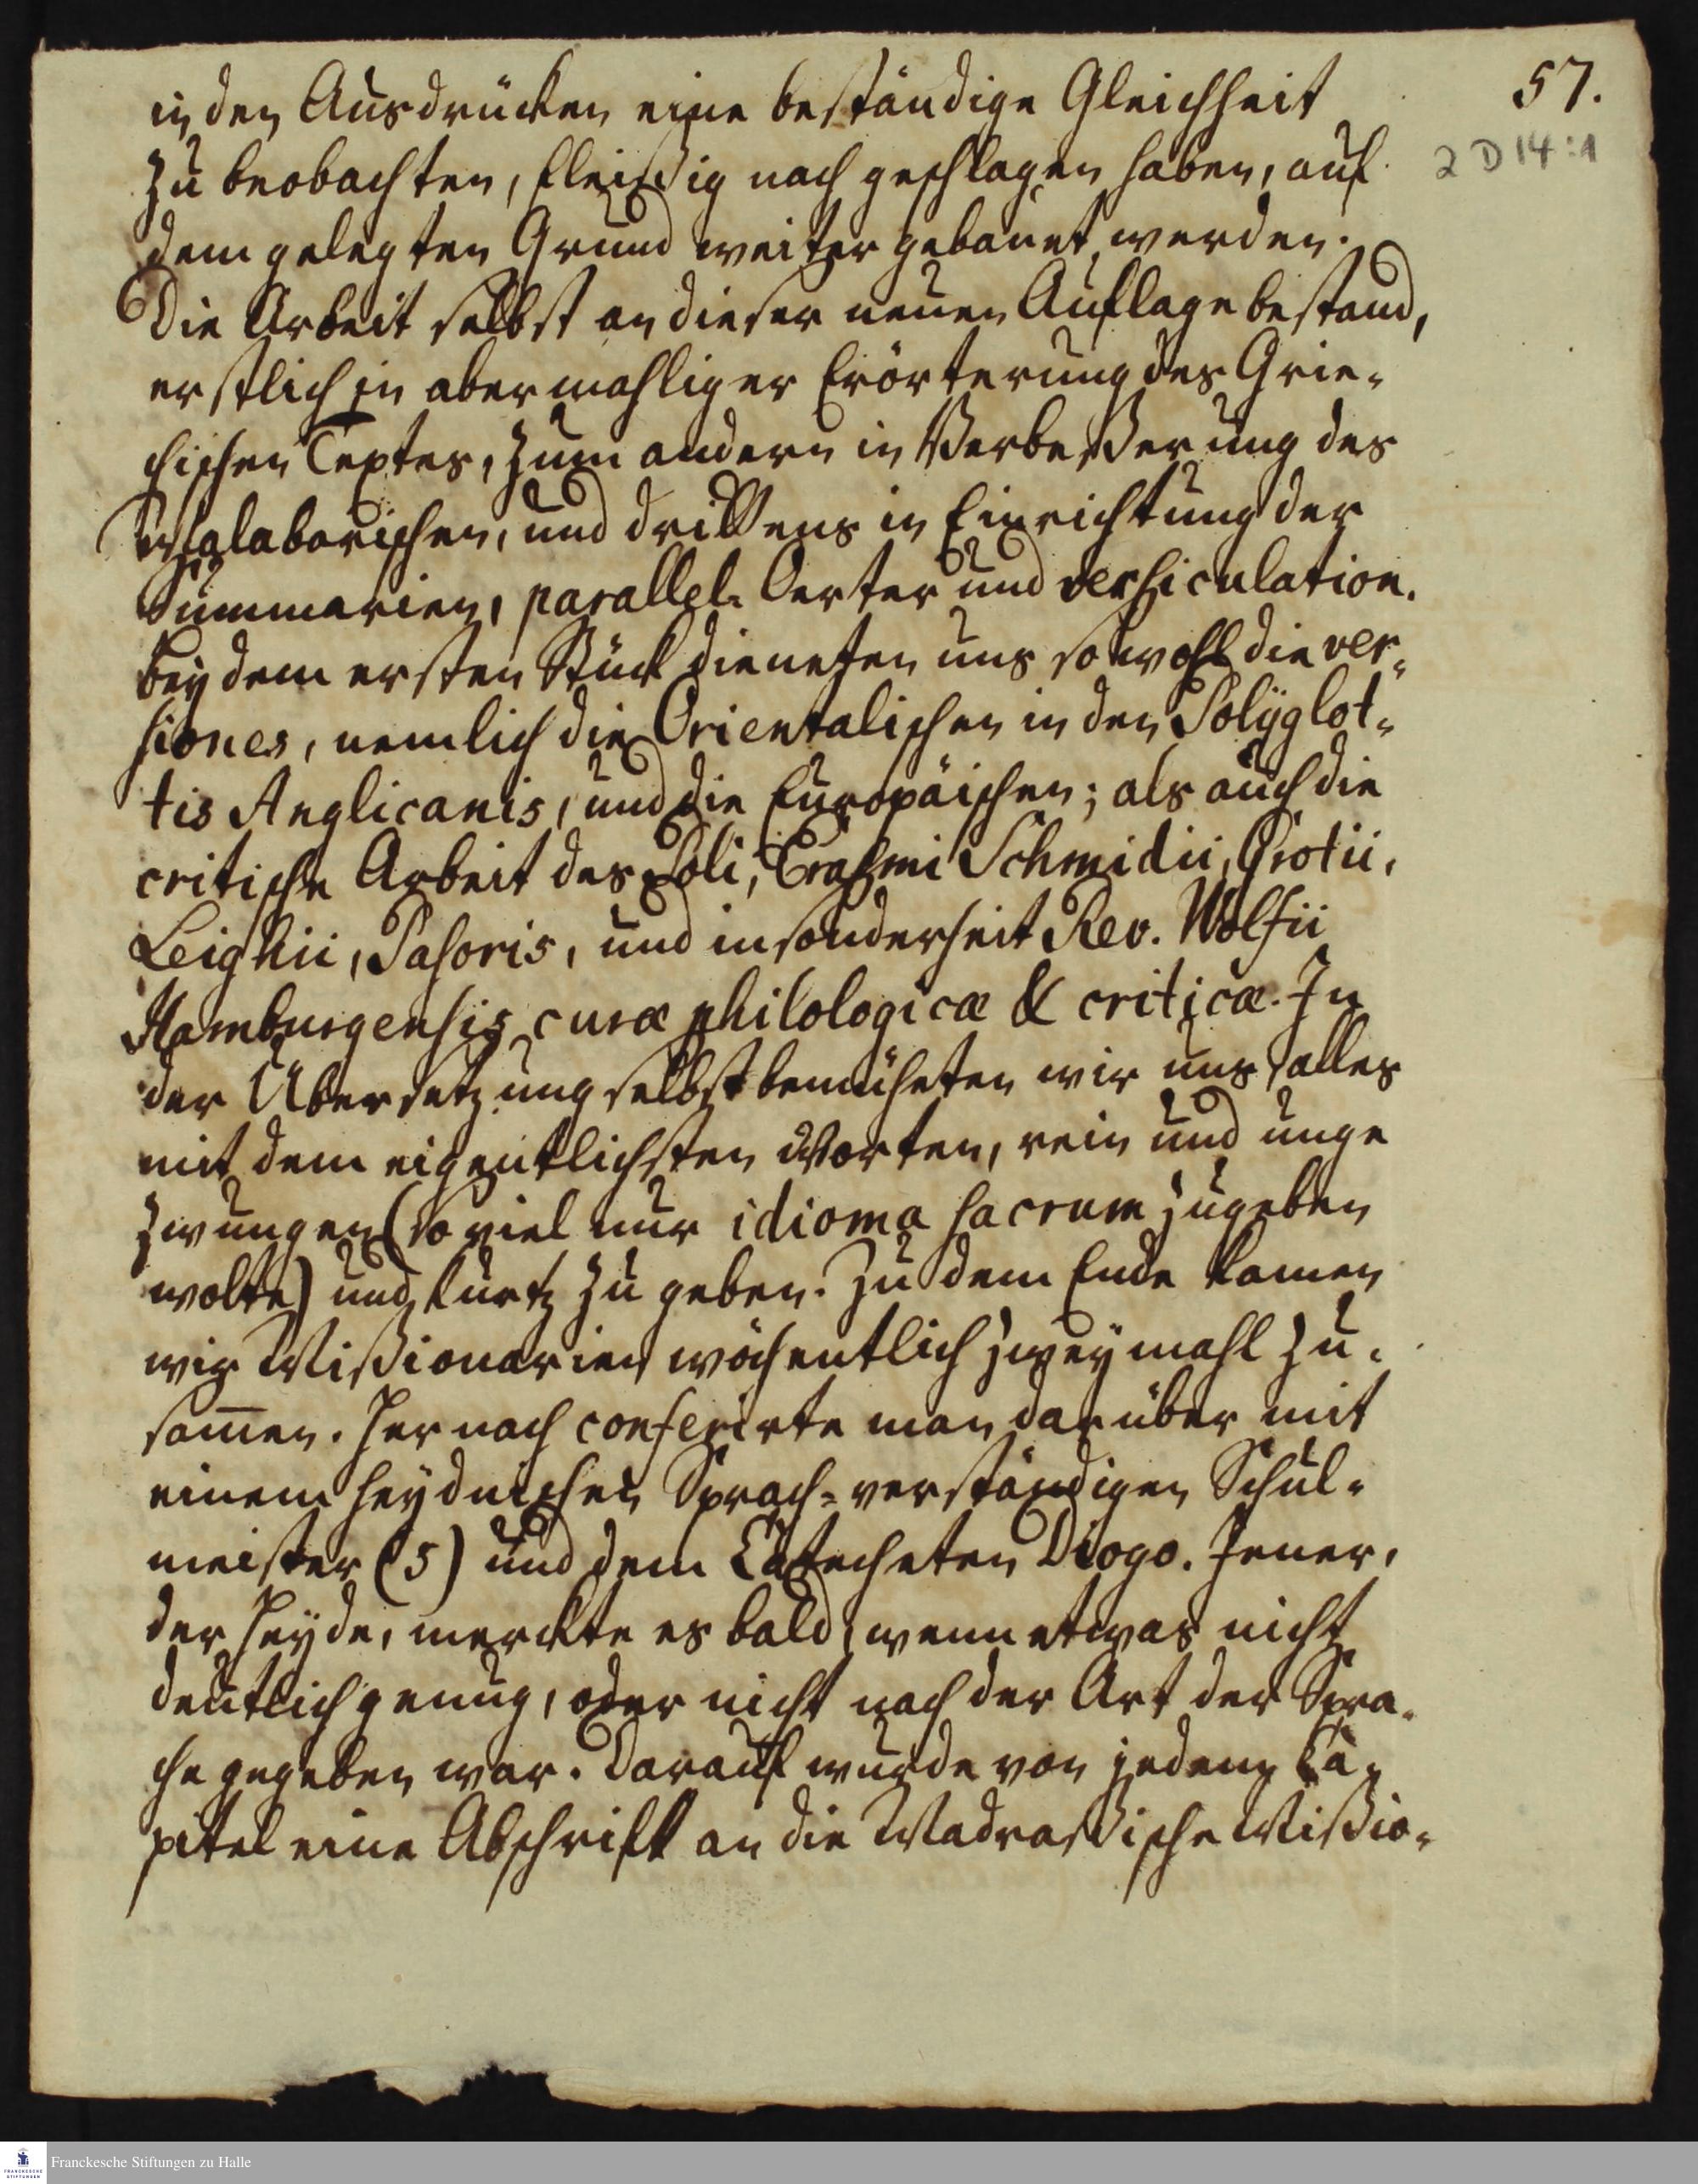 57.
2 D 14:1
in den Ausdrücken eine beständige Gleichheit
zu beobachten, fleißig nach geschlagen haben, auf
dem gelegten Grund weiter gebauet werden.
Die Arbeit selbst an dieser neuen Auflage bestand,
erstlich in abermahliger Erörterung des Grie-
chischen Textes, zum andern in Verbeßerung des
Malabarischen, und drittens in Einrichtung der
Summarien, parallel-Oerter und versiculation.
Bey dem ersten Stück dieneten uns so wohl die ver-
siones, nemlich die Orientalischen in den Polyglot-
tis Anglicanis, und die Europäischen; als auch die
critische Arbeit des Poli, Erasmi Schmidii, Grotii,
Leighii, Pasoris, und insonderheit Rev. Wolfii
Hamburgensis curæ philologicæ & criticæ. In
der Übersetzung selbst bemüheten wir uns alles
mit dem eigentlichsten Worten, rein und unge
zwungen (so viel nur idioma sacrum zugeben
wolte) und kurtz zu geben. Zu dem Ende kamen
wir Mißionarien wöchentlich zweymahl zu-
sam̄en. Hernach conferirte man darüber mit
einem heydnischen Sprach-verständigen Schul-
meister (5) und dem Catecheten Diogo. Jener,
der Heyde, merckte es bald, wenn etwas nicht
deutlich genug, oder nicht nach der Art der Spra-
che gegeben war. Darauf wurde von jedem Ca-
pitel eine Abschrift an die Madraßische Mißio-
Franckesche Stiftungen zu Halle